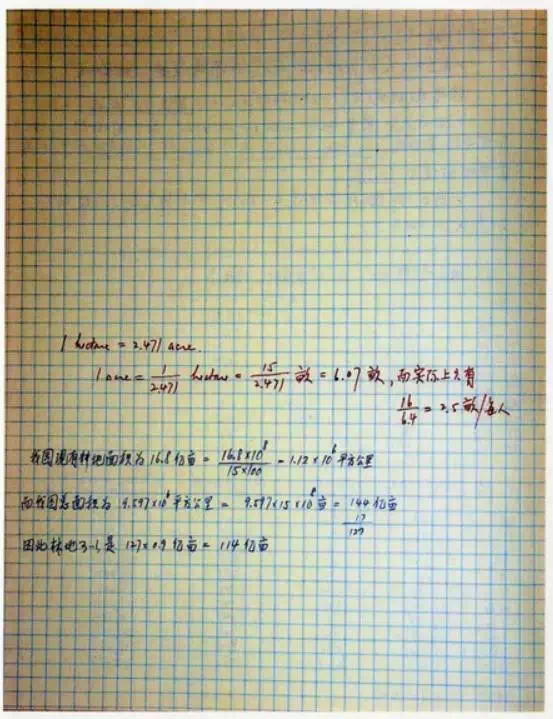 1 hectare = 2.471 acre.
1 acre = 1/2.471 hectare = 15/2.471 亩 = 6.07 亩, 而实际上只有
16/6.4 = 2.5 亩/每人
我国现有耕地面积为 16.8 亿亩 = 16.8×10⁸/15×100 = 1.12×10⁶ 平方公里
而我国总面积为 9.597×10⁶ 平方公里 = 9.597×15×10⁸ 亩 = 144 亿亩
17
127
因此林地 是 127×0.9 亿亩 = 114 亿亩